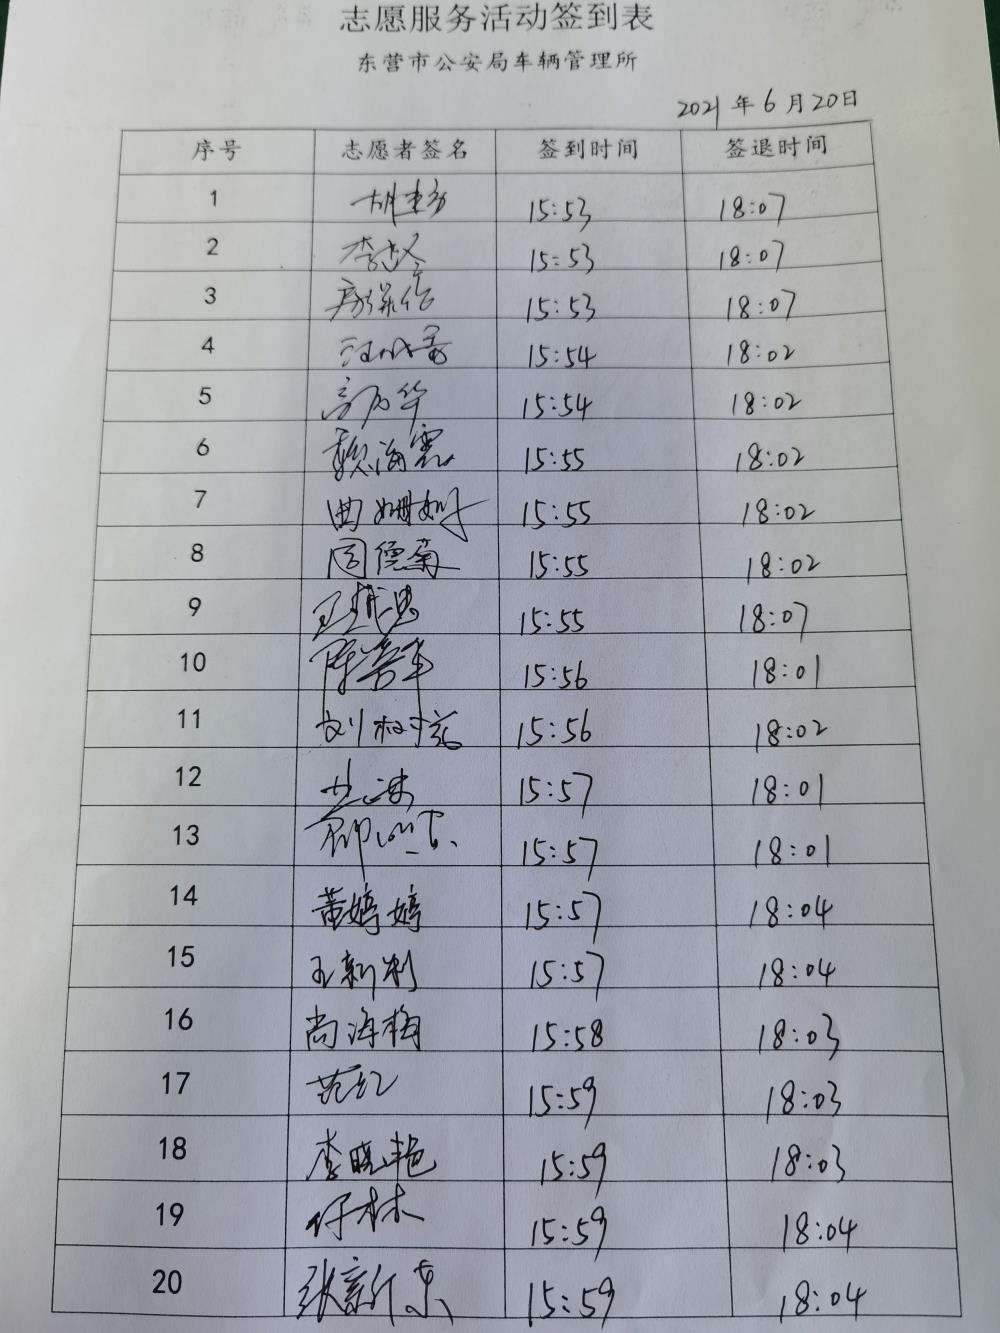 志愿服务活动签到表
东营市公安局车辆管理所
2021年6月20日
序号 志愿者签名 签到时间 签退时间
1 15:53 18:07
2 15:53 18:07
3 15:53 18:07
4 15:54 18:02
5 15:54 18:02
6 魏海霞 15:55 18:02
7 曲姗姗 15:55 18:02
8 周德菊 15:55 18:02
9 15:55 18:07
10 15:56 18:01
11 刘树 15:56 18:02
12 15:57 18:01
13 15:57 18:01
14 黄婷婷 15:57 18:04
15 王新利 15:57 18:04
16 尚海梅 15:58 18:03
17 范红 15:59 18:03
18 李晓艳 15:59 18:03
19 仔林 15:59 18:04
20 张新东 15:59 18:04